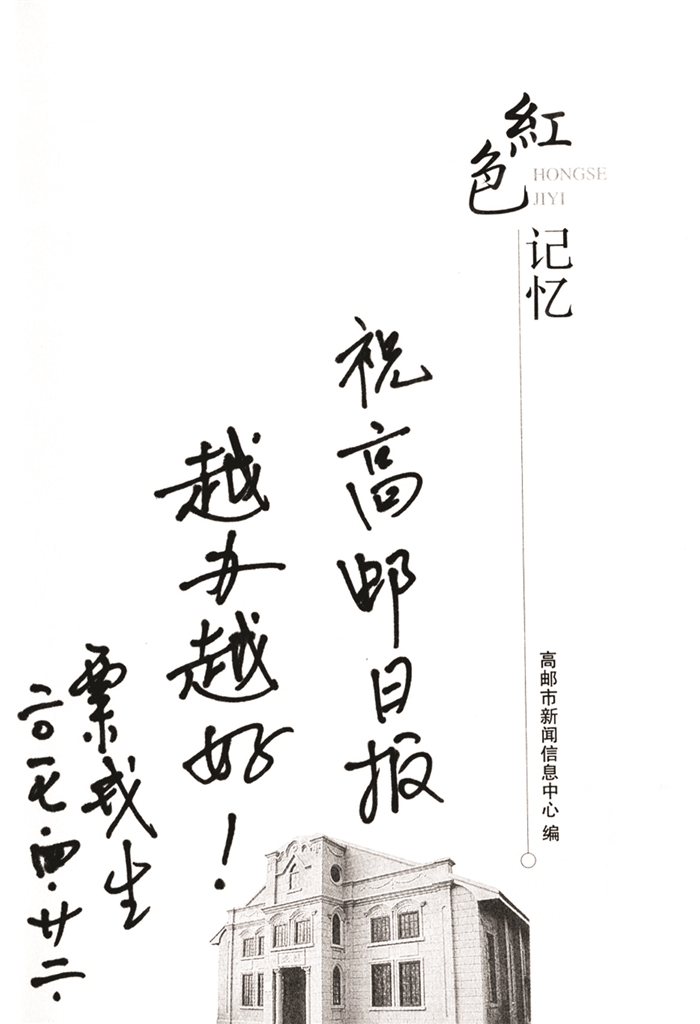 紅色
HONGSE
JIYI
记忆
高邮市新闻信息中心 编
祝高邮日报
越办越好！
粟戎生
二〇一七·四·廿二·